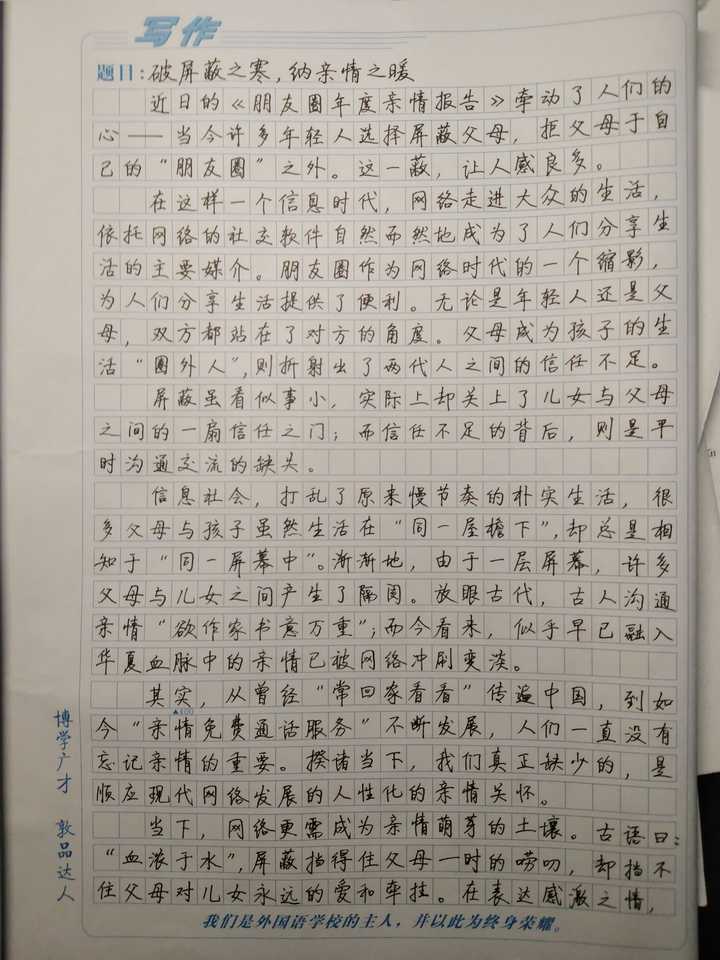 写作
题目:破屏蔽之寒,纳亲情之暖
近日的《朋友圈年度亲情报告》牵动了人们的
心——当今许多年轻人选择屏蔽父母,拒父母于自
己的“朋友圈”之外。这一蔽,让人感良多。
在这样一个信息时代,网络走进大众的生活,
依托网络的社交软件自然而然地成为了人们分享生
活的主要媒介。朋友圈作为网络时代的一个缩影,
为人们分享生活提供了便利。无论是年轻人还是父
母,双方都站在了对方的角度。父母成为孩子的生
活“圈外人”,则折射出了两代人之间的信任不足。
屏蔽虽看似事小,实际上却关上了儿女与父母
之间的一扇信任之门;而信任不足的背后,则是平
时沟通交流的缺失。
信息社会,打乱了原来慢节奏的朴实生活,很
多父母与孩子虽然生活在“同一屋檐下”,却总是相
知于“同一屏幕中”。渐渐地,由于一层屏幕,许多
父母与儿女之间产生了隔阂。放眼古代,古人沟通
亲情“欲作家书意万重”;而今看来,似乎早已融入
华夏血脉中的亲情已被网络冲刷变淡。
其实,从曾经“常回家看看”传遍中国,到如
▲400
今“亲情免费通话服务”不断发展,人们一直没有
忘记亲情的重要。揆诸当下,我们真正缺少的,是
顺应现代网络发展的人性化的亲情关怀。
当下,网络更需成为亲情萌芽的土壤。古语曰:
“血浓于水”,屏蔽挡得住父母一时的唠叨,却挡不
住父母对儿女永远的爱和牵挂。在表达感激之情,
我们是外国语学校的主人,并以此为终身荣耀。
博学广才 敦品达人